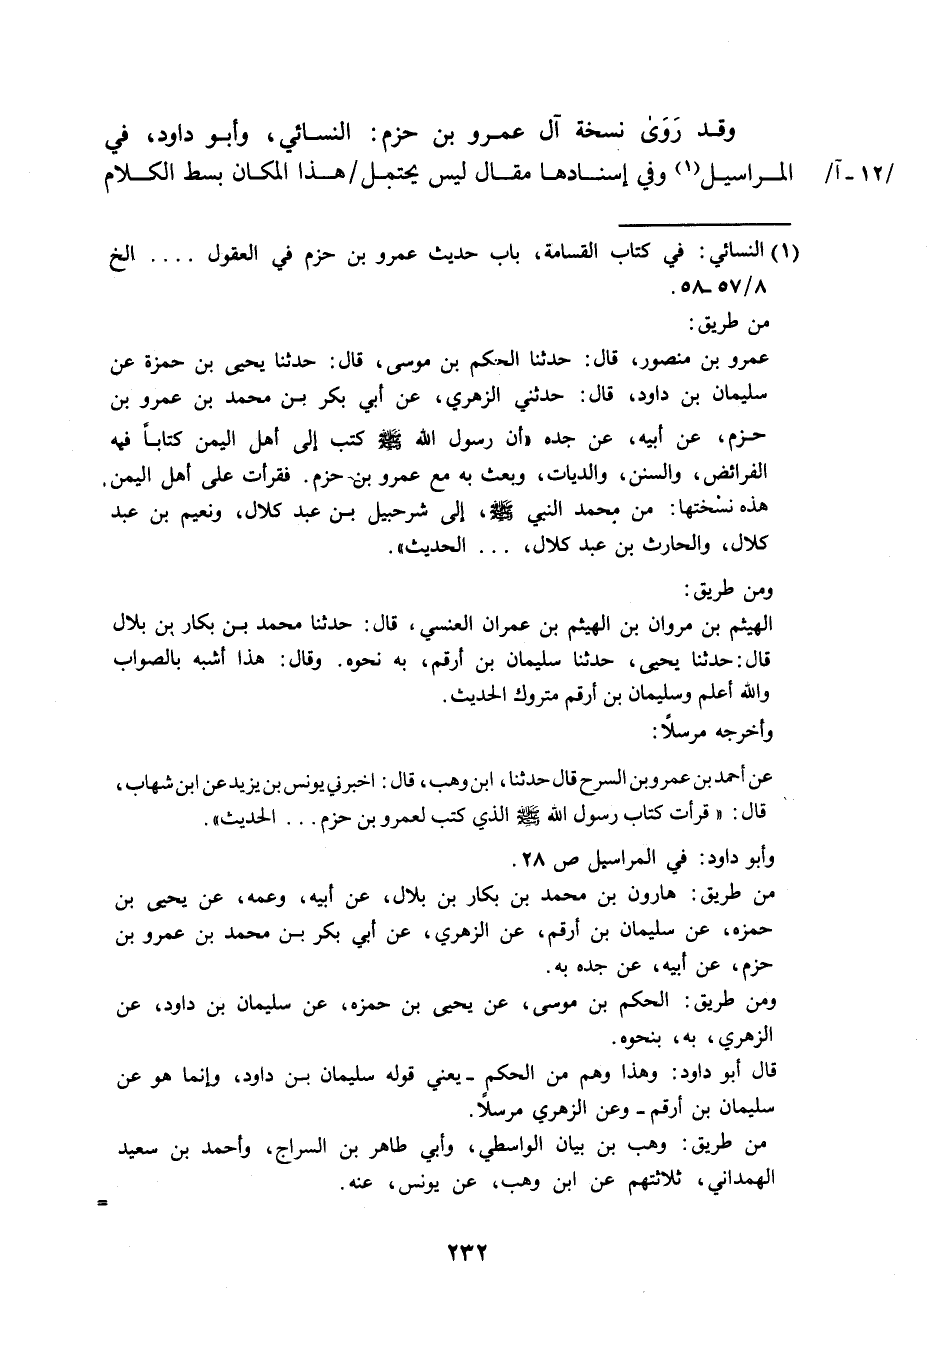 وقـد رَوَىٰ نسخة آل عمـرو بن حزم: النسائي، وأبـو داود، في
/١٢ـ آ/ المـراسيـل(١) وفي إسنـادهـا مقـال ليس يحتمـل/هـذا المكـان بسط الكـلام
(١) النسائي: في كتاب القسامة، باب حديث عمرو بن حزم في العقول .... الخ
٥٧/٨ـ٥٨.
من طريق:
عمرو بن منصور، قال: حدثنا الحكم بن موسى، قال: حدثنا يحيى بن حمزة عن
سليمان بن داود، قال: حدثني الزهري، عن أبي بكر بـن محمد بن عمرو بن
حـزم، عن أبيه، عن جده «أن رسول الله ﷺ كتب إلى أهل اليمن كتابـاً فيه
الفرائض، والسنن، والديات، وبعث به مع عمرو بن حزم. فقرأت على أهل اليمن.
هذه نسْختها: من محمد النبي ﷺ، إلى شرحبيل بـن عبد كلال، ونعيم بن عبد
كلال، والحارث بن عبد كلال، ... الحديث».
ومن طريق:
الهيثم بن مروان بن الهيثم بن عمران العنسي، قال: حدثنا محمد بـن بكار بن بلال
قال: حدثنا يحيى، حدثنا سليمان بن أرقم، به نحوه. وقال: هذا أشبه بالصواب
والله أعلم وسليمان بن أرقم متروك الحديث.
وأخرجه مرسلاً:
عن أحمد بن عمرو بن السرح قال حدثنا، ابن وهب، قال: اخبرني يونس بن يزيد عن ابن شهاب،
قال: «قرأت كتاب رسول الله ﷺ الذي كتب لعمرو بن حزم... الحديث».
وأبو داود: في المراسيل ص ٢٨.
من طريق: هارون بن محمد بن بكار بن بلال، عن أبيه، وعمه، عن يحيى بن
حمزه، عن سليمان بن أرقم، عن الزهري، عن أبي بكر بـن محمد بن عمرو بن
حزم، عن أبيه، عن جده به.
ومن طريق: الحكم بن موسى، عن يحيى بن حمزه، عن سليمان بن داود، عن
الزهري، به، بنحوه.
قال أبو داود: وهذا وهم من الحكم ـ يعني قوله سليمان بـن داود، وإنما هو عن
سليمان بن أرقم ـ وعن الزهري مرسلاً.
من طريق: وهب بن بيان الواسطي، وأبي طاهر بن السراج، وأحمد بن سعيد
الهمداني، ثلاثتهم عن ابن وهب، عن يونس، عنه.
=
٢٣٢